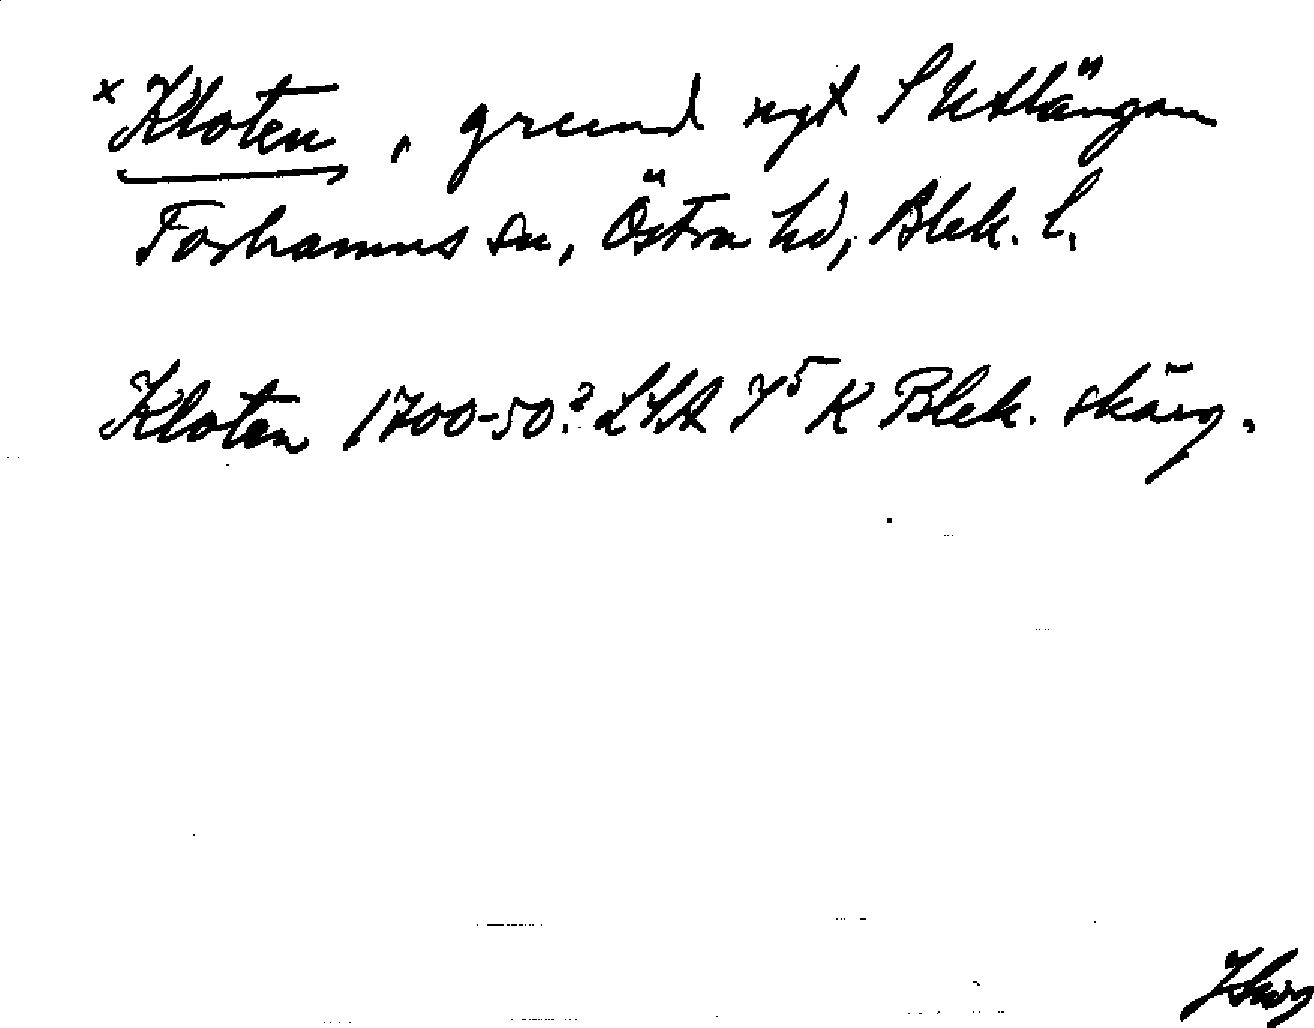 x Kloten, grund nyt S Utlängan
Torhamns sn, Östra hd, Blek. l.
Kloten 1700-50? LSA Y⁵ K Blek. skärg.